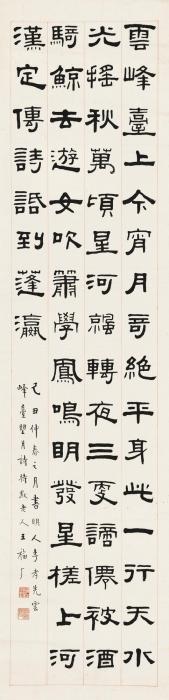 雲峰臺上今宵月奇絕平身此一行天水
光搖秋萬頃星河轉夜三更謫僊被酒
騎鯨去遊女吹簫學鳳鳴明發星槎上河
漢定傳詩話到蓬瀛
己丑仲春之月書明人李孝先雲
峰臺望月詩持默老人王福厂